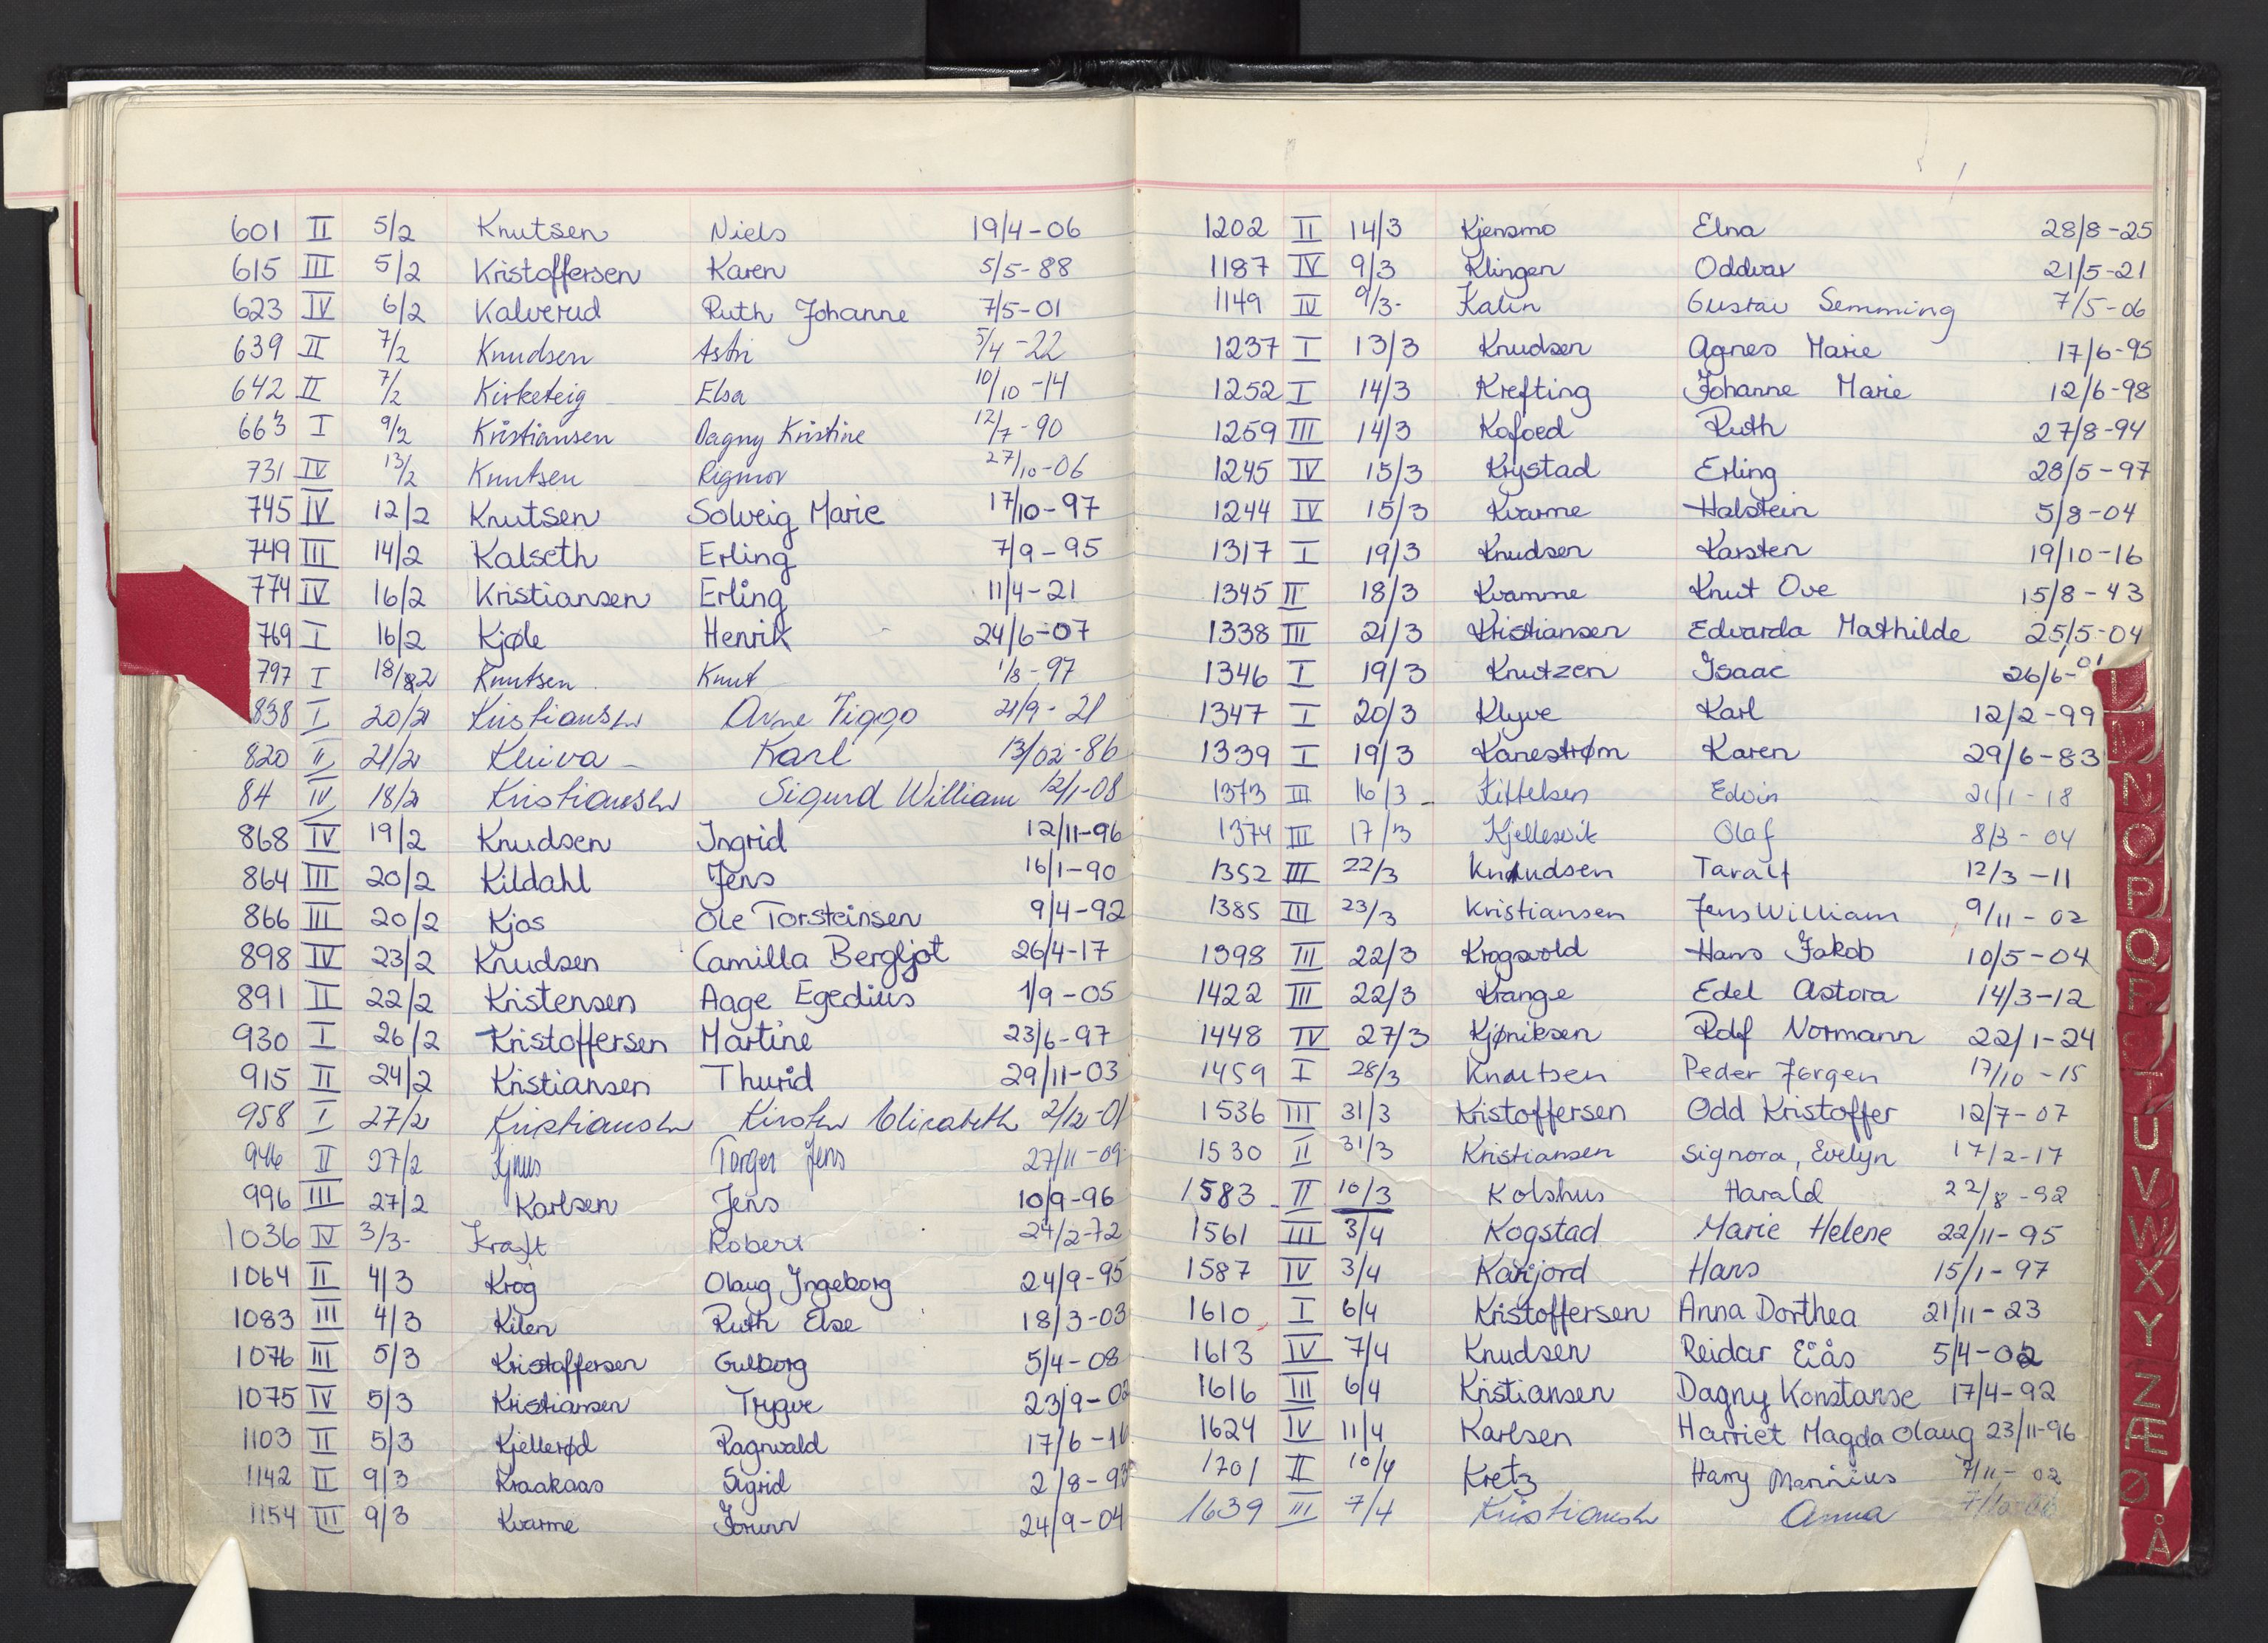 601 II 5/2 Knutsen Niels 19/4-06
615 III 5/2 Kristoffersen Karen 5/5-88
623 IV 6/2 Kalverud Ruth Johanne 7/5-01
639 II 7/2 Knudsen Astri 5/4-22
642 II 7/2 Kirketeig Elsa 10/10-14
663 I 9/2 Kristiansen Dagny Kristine 12/7-90
731 IV 13/2 Knutsen Rigmor 27/10-06
745 IV 12/2 Knutsen Solveig Marie 17/10-97
749 III 14/2 Kalseth Erling 7/9-95
774 IV 16/2 Kristiansen Erling 11/4-21
769 I 16/2 Kjøle Henrik 24/6-07
797 I 18/2 Knutsen Knut 1/8-97
838 I 20/2 Kristiansen Arne Viggo 21/9-21
820 II 21/2 Karl 13/02-86
84 IV 18/2 Kristiansen Sigurd William 12/1-08
868 IV 19/2 Knudsen Ingrid 12/11-96
864 III 20/2 Kildahl Jens 16/1-90
866 III 20/2 Kjos Ole Torsteinsen 9/4-92
898 IV 23/2 Knudsen Camilla Bergljot 26/4-17
891 II 22/2 Kristensen Aage Egedius 1/9-05
930 I 26/2 Kristoffersen Martine 23/6-97
915 II 24/2 Kristiansen Thurid 29/11-03
958 I 27/2 Kristiansen Kirsten Elisabeth 2/12-01
946 II 27/2 Torger Jens 27/11-09
996 III 27/2 Karlsen Jens 10/9-96
1036 IV 3/3- Kraft Robert 24/2-72
1064 II 4/3 Krog Olaug Ingeborg 24/9-95
1083 III 4/3 Kilen Ruth Else 18/3-03
1076 III 5/3 Kristoffersen Gulborg 5/4-08
1075 IV 5/3 Kristiansen Trygve 23/9-02
1103 II 5/3 Kjellerød Ragnvald 17/6-
1142 II 9/3 Kraakaas Sigrid 2/8-93
1154 III 9/3 Kvarme Jorunn 24/9-04
1202 II 14/3 Kjensmo Elna 28/8-25
1187 IV 9/3 Klingen Oddvar 21/5-21
1149 IV 9/3- Kalin Gustav Semming 7/5-06
1237 I 13/3 Knudsen Agnes Marie 17/6-95
1252 I 14/3 Krefting Johanne Marie 12/6-98
1259 III 14/3 Kofoed Ruth 27/8-94
1245 IV 15/3 Krystad Erling 28/5-97
1244 IV 15/3 Kvarme Halstein 5/8-04
1317 I 19/3 Knudsen Karsten 19/10-16
1345 II 18/3 Kvamme Knut Ove 15/8-43
1338 III 21/3 Kristiansen Edvarda Mathilde 25/5-04
1346 I 19/3 Knutzen Isaac 26/6-
1347 I 20/3 Klyve Karl 12/2-99
1339 I 19/3 Kanestrøm Karen 29/6-83
1373 III 16/3 Kittelsen Edvin 21/1-18
1374 III 17/3 Kjellesvik Olaf 8/3-04
1352 III 22/3 Knudsen Taralf 12/3-11
1385 III 23/3 Kristiansen Jens William 9/11-02
1398 III 22/3 Krogsvold Hans Jakob 10/5-04
1422 III 22/3 Krange Edel Astora 14/3-12
1448 IV 27/3 Kjøniksen Rolf Normann 22/1-24
1459 I 28/3 Knutsen Peder Jørgen 17/10-15
1536 III 31/3 Kristoffersen Odd Kristoffer 12/7-07
1530 II 31/3 Kristiansen Signora, Evelyn 17/2-17
1583 II 10/3 Kolshus Harald 22/8-92
1561 III 3/4 Kogstad Marie Helene 22/11-95
1587 IV 3/4 Karijord Hans 15/1-97
1610 I 6/4 Kristoffersen Anna Dorthea 21/11-23
1613 IV 7/4 Knudsen Reidar Eiås 5/4-02
1616 III 6/4 Kristiansen Dagny Konstanse 17/4-92
1624 IV 11/4 Karlsen Harriet Magda Olaug 23/11-96
1701 II 10/4 Kretz Harry Marinius 7/11-02
1639 III 7/4 Kristiansen Anna
N
O
P
Q
R
T
U
V
W
X
Y
Z
Æ
Ø
Å